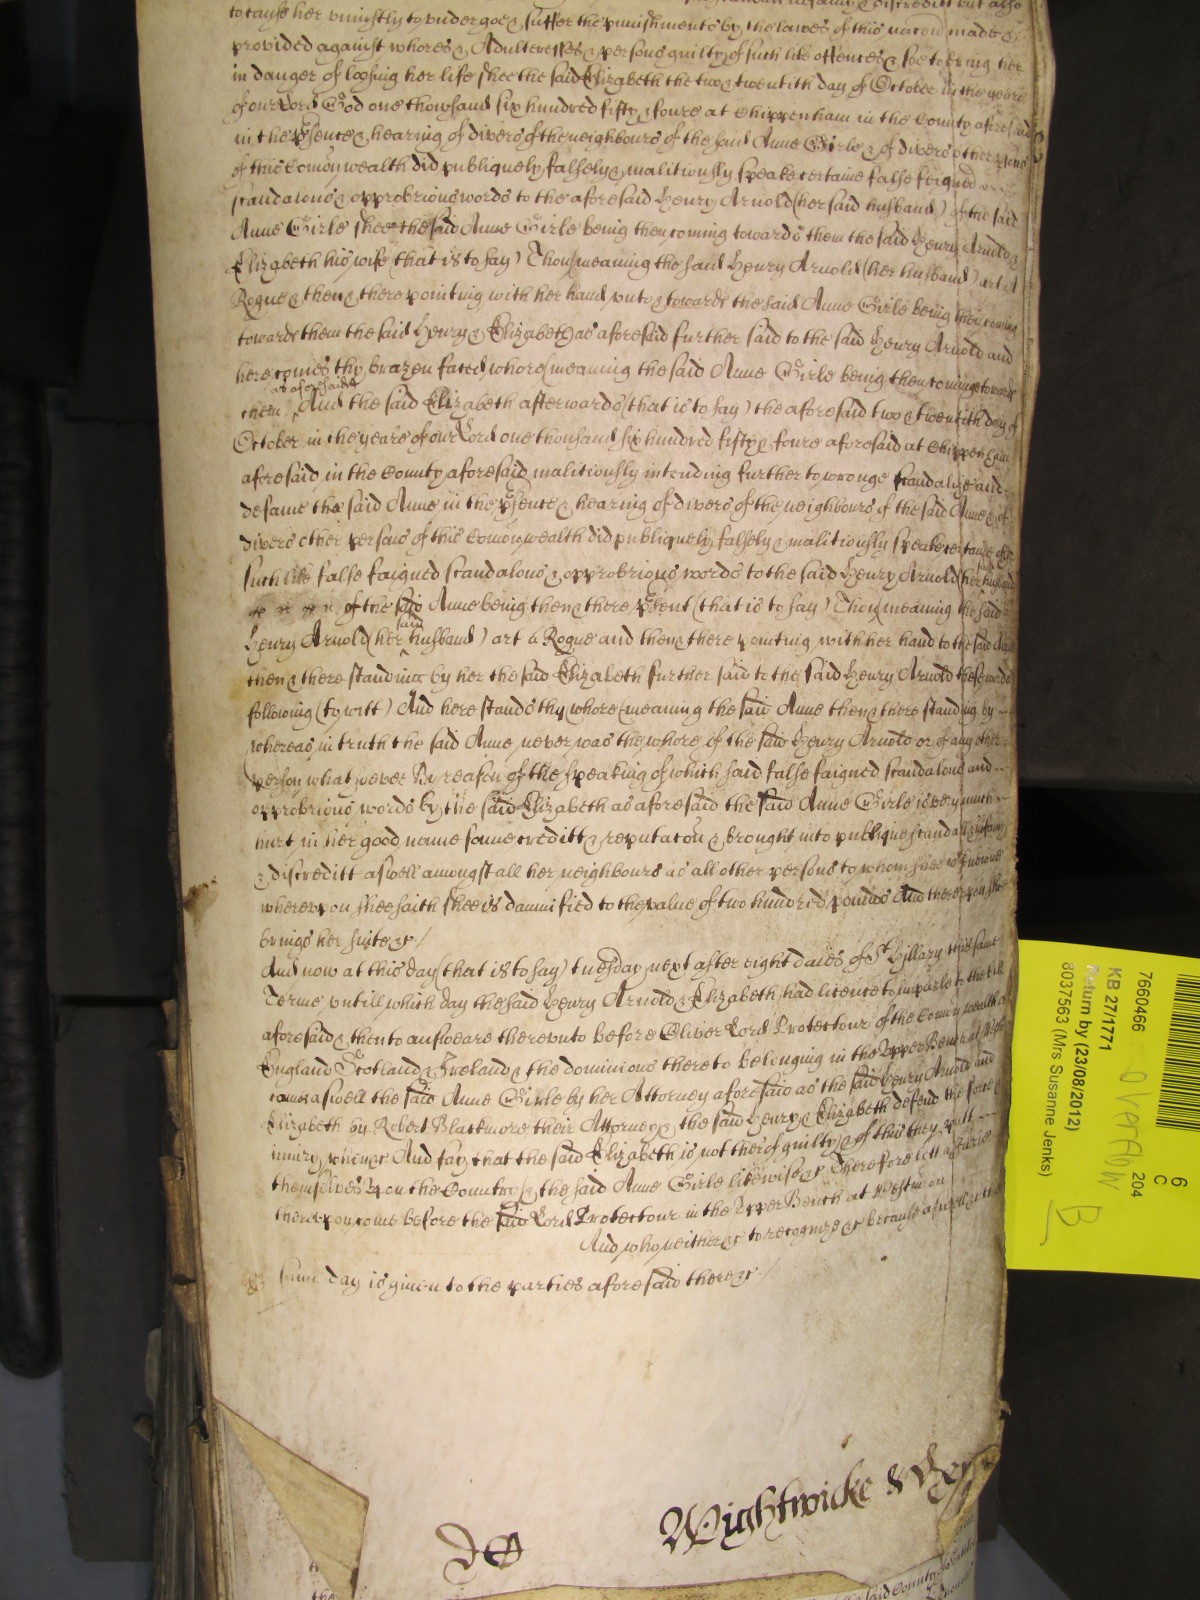 to cause her uniustly to undergoe & suffer the punishments by the lawes of this nacon made &
provided against whores & Adulteresses & persons guilty of such like offences & soe to bring her
in danger of loosing her life shee the said Elizabeth the two & twentith day of October in the yeare
of our Lord God one thowsand six hundred fifty & foure at Chippenham in the County aforesaid
in the psence & hearing of divers of the neighbours of the said Anne Girle & of divers other psons
of this Comonwealth did publiquely falsely & malitiously speake certaine false feigned
scandalous & opprobrious words to the aforesaid Henry Arnold (her said husband) of the said
Anne Girle shee the said Anne Girle being then coming towards them the said Henry Arnold &
Elizabeth his wife (that is to say) Thou (meaning the said Henry Arnold (her husband) art A
Rogue & then & there pointing with her hand unto & towards the said Anne Girle being then coming
towards them the said Henry & Elizabeth as aforesaid further said to the said Henry Arnold and
here comes thy brazen faced whore (meaning the said Anne Girle being then coming towards
as aforesaid
them) And the said Elizabeth afterwards (that is to say) the aforesaid two & twentith day of
October in the yeare of our Lord one thousand six hundred fifty & foure aforesaid at Chippenham
aforesaid in the County aforesaid malitiously intending further to wronge scandalize and
defame the said Anne in the psence & hearing of divers of the neighbours of the said Anne & of
divers other persons of this Comonwealth did publiquely falsely & malitiously speake certaine other
such like false faigned scandalous & opprobrious words to the said Henry Arnold (her husband
of the said Anne being then & there psent (that is to say) Thou (meaning the said
said
Henry Arnold (her husband) art a Rogue and then & there pointing with her hand to the said Anne
then & there standing by her the said Elizabeth further said to the said Henry Arnold these words
following (to witt) And here stands thy whore (meaning the said Anne then & there standing by
whereas in truth the said Anne never was the whore of the said Henry Arnold or of any other
person whatsoever By reason of the speaking of which said false faigned scandalous and
opprobrious words by the said Elizabeth as aforesaid the said Anne Girle is very much
hurt in her good name fame creditt & reputacon & brought into publique scandall infamy
& discreditt aswell amongst all her neighbours as all other persons to whom shee is knowne
whereupon shee saith shee is damnified to the value of two hundred pounds And thereupon shee
brings her suite &c /
And now at this day (that is to say) tuesday next after eight daies of St Hillary this same
Terme untill which day the said Henry Arnold & Elizabeth had licence to imparle to the bill
aforesaid & then to answeare thereunto before Oliver Lord Protectour of the Comonwealth of
England Scotland & Ireland & the dominions thereto belonging in the Upper Bench at Westm
comes aswell the said Anne Girle by her Attorney aforesaid as the said Henry Arnold and
Elizabeth by Robert Blackmore their Attorney & the said Henry & Elizabeth defend the force &
iniury when &c And say that the said Elizabeth is not therof guilty & of this they putt
themselves upon the Country & the said Anne Girle likewise &c Therefore lett a Jurie
thereupon come before the said Lord Protectour in the Upper Bench at Westm on
And who neither &c to recognize &c because aswell &c the
same day is given to the parties aforesaid there &c /
Wightwicke &
7660466
KB 27/1771
Return by (23/08/2012)
8037563 (Mrs Susanne Jenks)
overflow
204
C
6
B